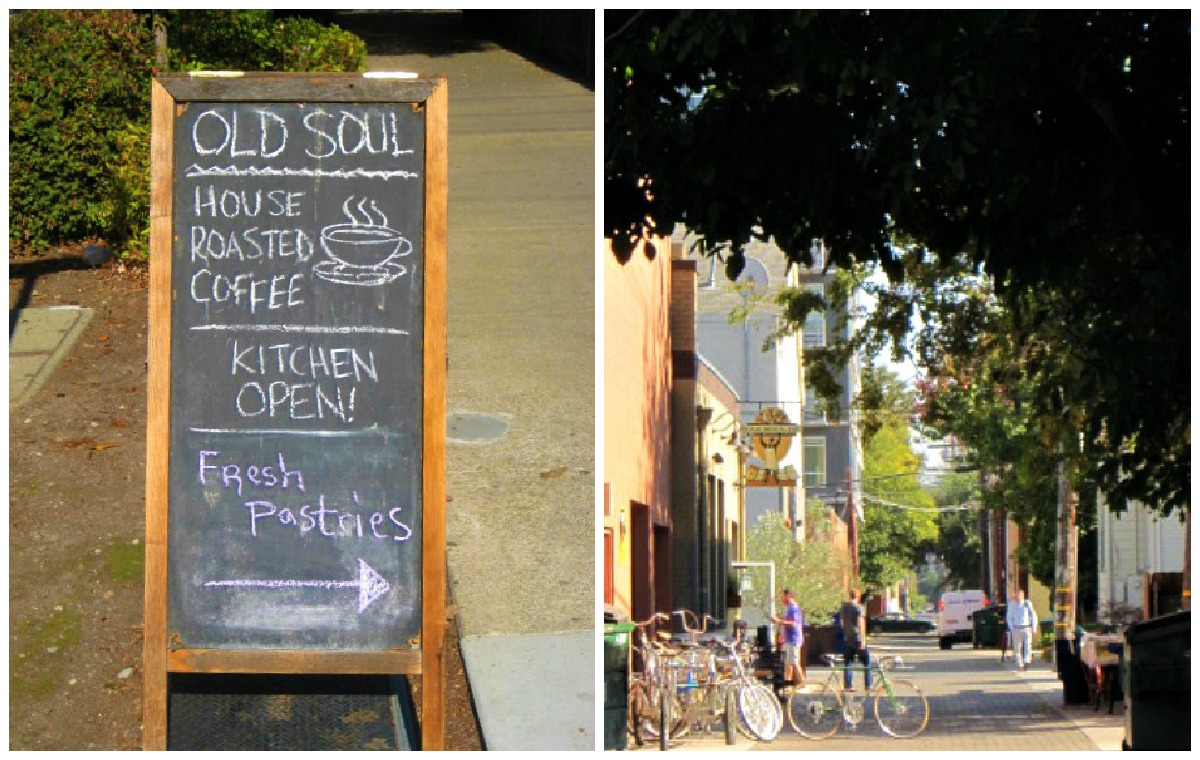 OLD SOUL
HOUSE
ROASTED
COFFEE
KITCHEN
OPEN!
Fresh
Pastries